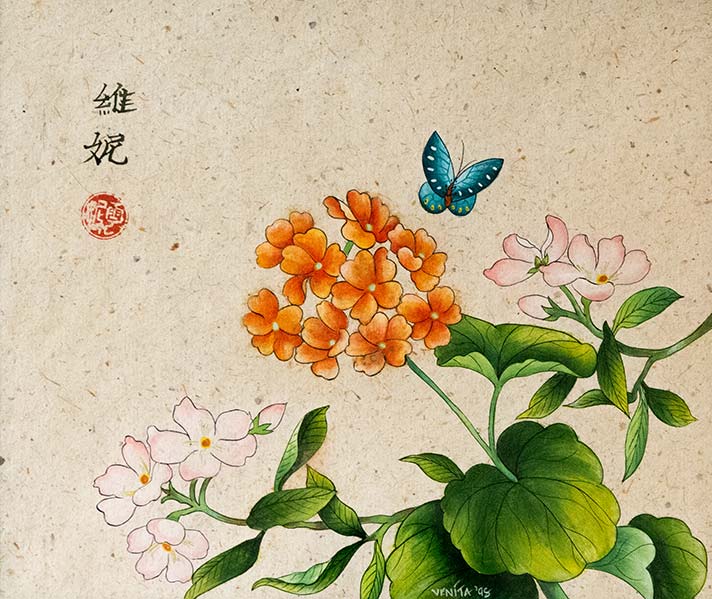 維
妮
VENITA '98